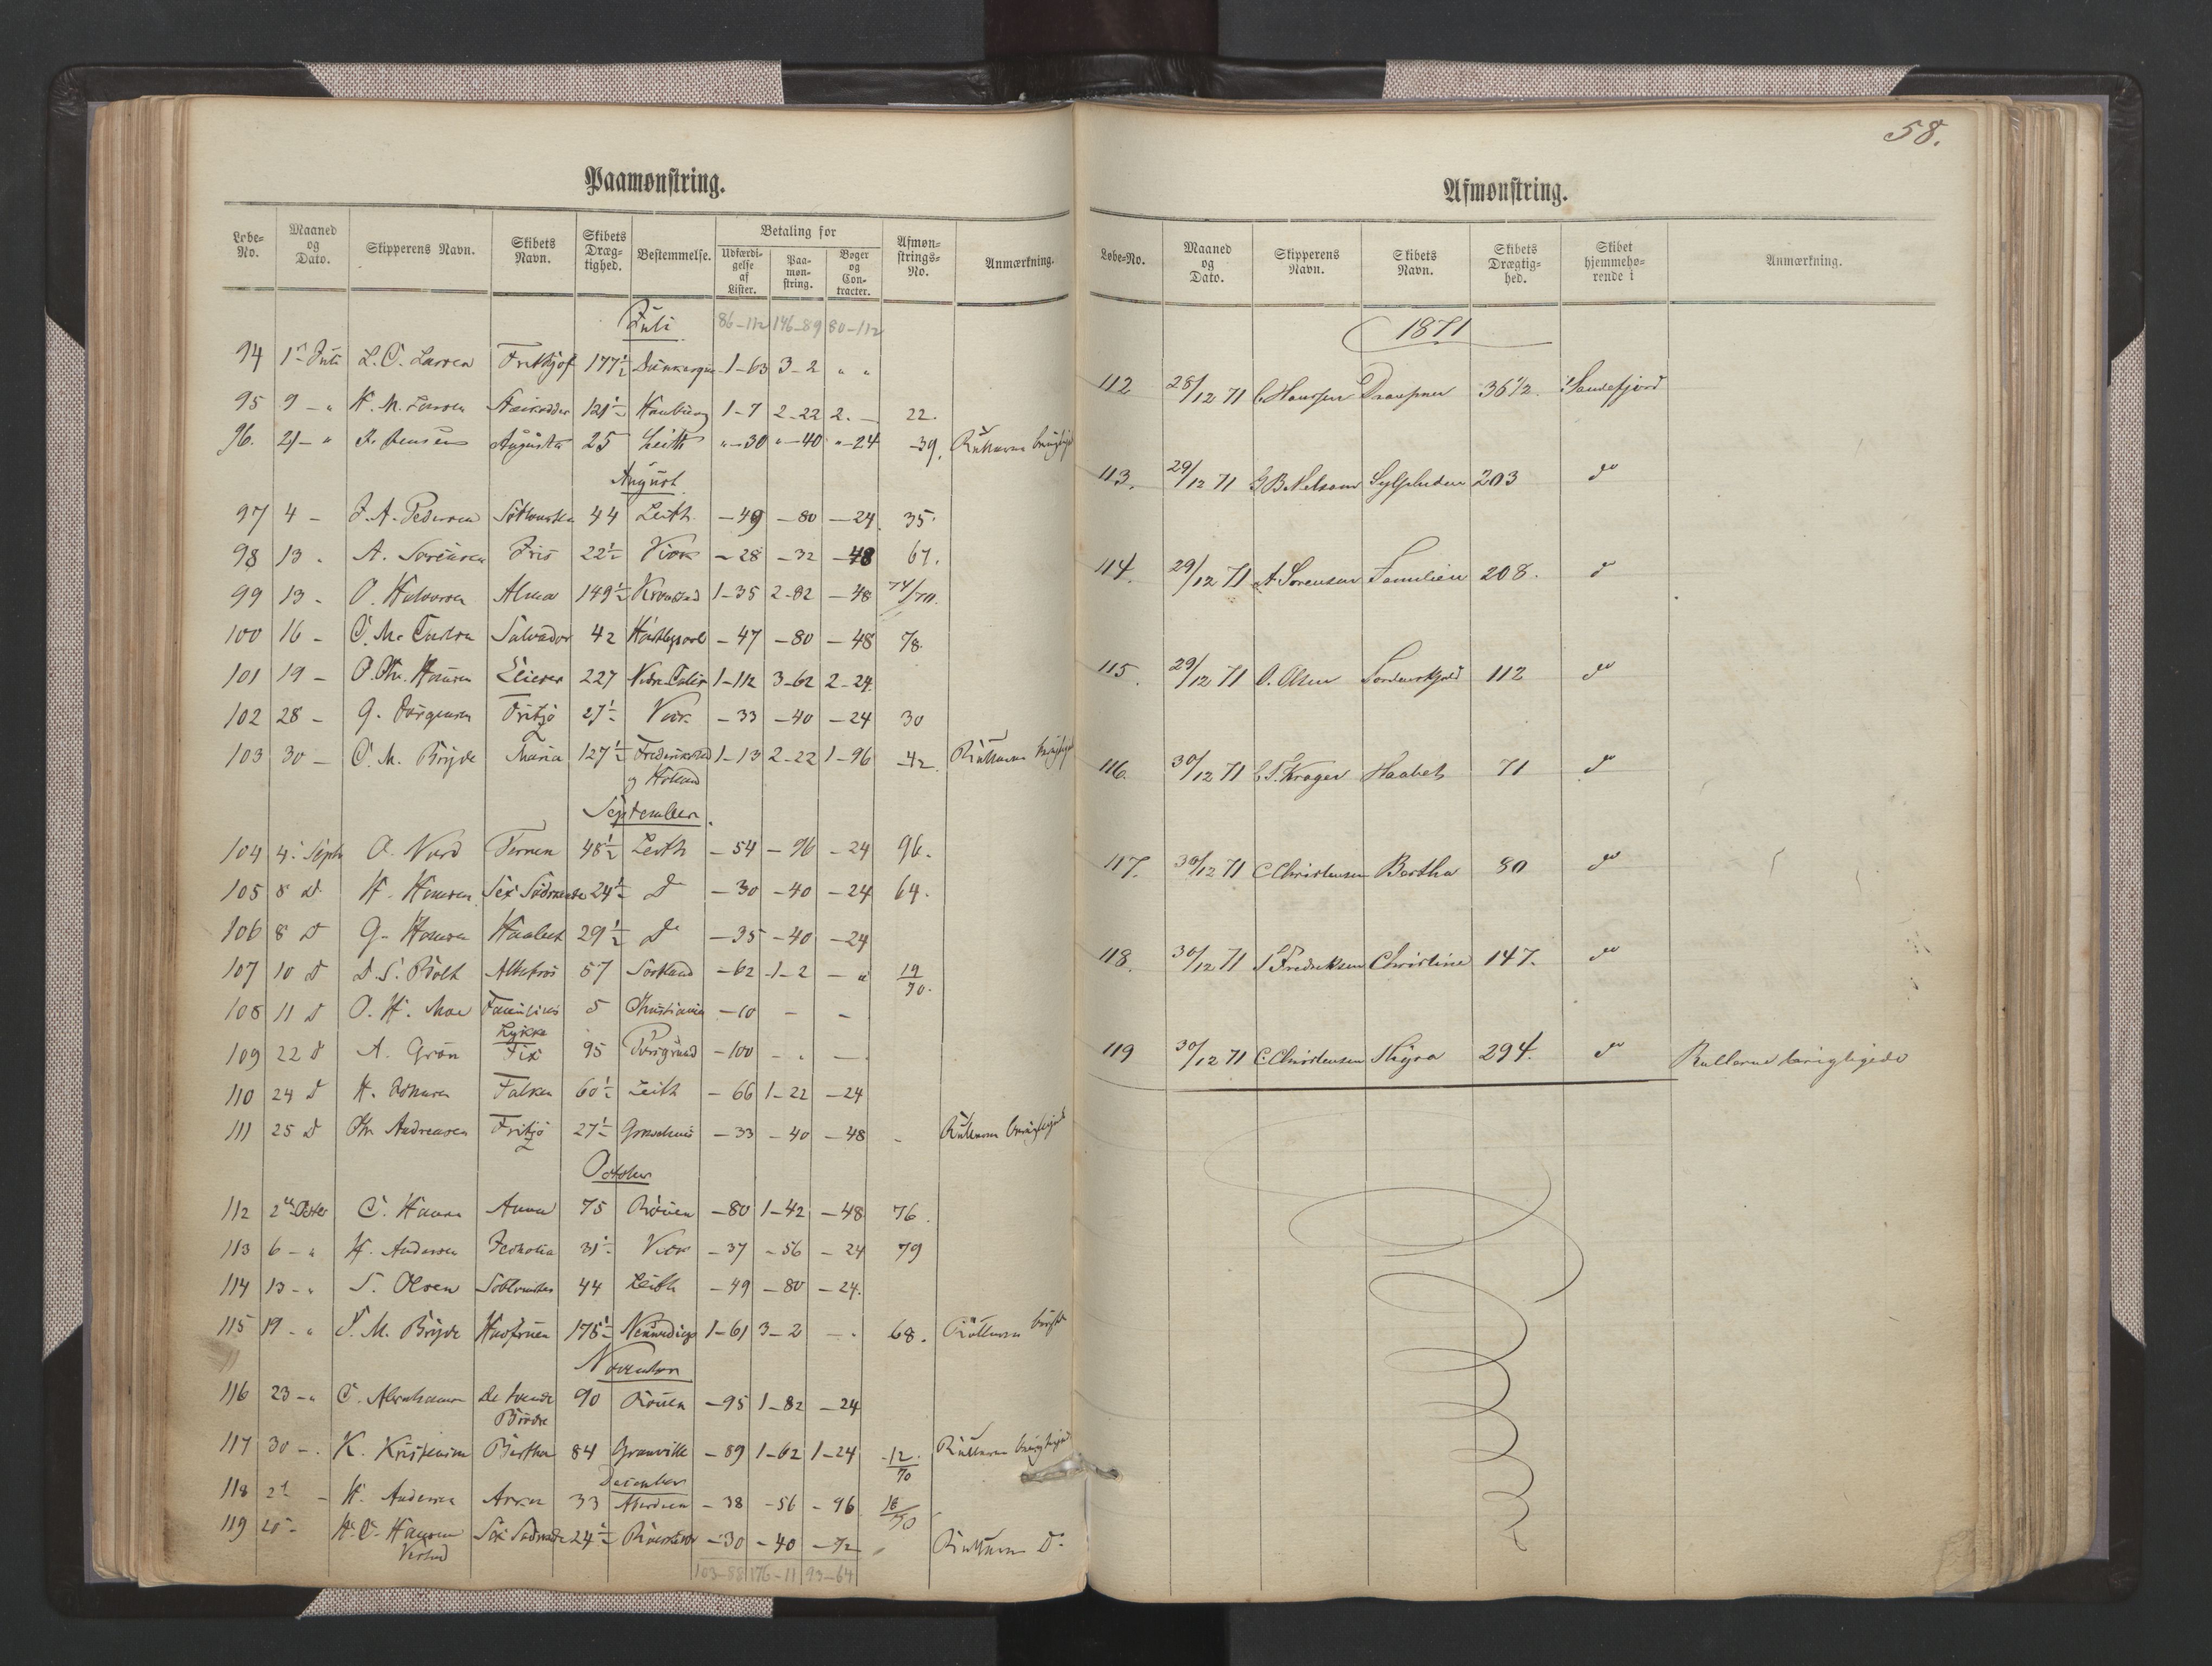 Paamønstring.
Løbe-No. Maaned og Dato. Skipperens Navn. Skibets Navn. Skibets Drægtighed. Bestemmelse. Betaling for Udfærdigelse af Lister. Paamønstring. Bøger og Contracter. Afmønstrings-No. Anmærkning.
Juli 86-112 146-89 80-112
94 1ste Juli L. C. Larsen Frithjof 177½ Dünkerque 1-63 3-2 " "
95 9 - " H. M. Larsen 121½ Hamburg 1-7 2-22 2. - 22.
96. 21 - " Jensen Augusta 25 Leith "-30 "-40 "-24 -39. Rullerne
August
97 4 - J. A. Pedersen 44 Leith -49 -80 -24 35.
98 13 - A. Sørensen Iris 22½ Viok -28 -32 -48 67.
99 13 - O. Halvorsen Alma 149½ Kronstad 1-35 2-82 -48 74/70.
100 16 - C. M. Salvador 42 Hartlepool -47 -80 -48 78.
101 19 - O. Chr. Hansen 227 1-112 3-62 2-24.
102 28 - G. Jørgensen Fritzø 27½ Viok -33 -40 -24 30
103 30 - C. M. Bryde Maria 127½ Frederikstad 1-13 2-22 1-96 -42. Rullerne
og Holland
September.
104 4. Septr O. Nord Ternen 48½ Leith -54 -96 -24 96.
105 8 d H. Hansen Sex Södskende 24½ Do -30 -40 -24 64.
106 8 d G. Hansen Haabet 29½ Do -35 -40 -24
107 10 d Albatros 57 Skotland -62 1-2 - " 19/70.
108 11 d O. H. Moe Familiens 5 Christiania -10 - -
Lykke
109 22 d A. Grøn Fix 95 Porsgrund -100 - . -
110 24 d H. Falken 60½ Leith -66 1-22 -24
111 25 d Chr. Andreasen Fritzø 27½ -33 -40 -48 - Rullerne
October
112 2den Octbr C. Hansen Anna 75 Rouen -80 1-42 -48 76.
113 6 - " H. Andersen 31½ Viok -37 -56 -24 79
114 13 - " S. Olsen 44 Leith -49 -80 -24.
115 19 - " S. M. Bryde Havfruen 175½ 1-61 3-2 - . 68. Rullerne
November
116 23 - " C. Abrahamsen De tvende 90 Rouen -95 1-82 -24
Brødre
117 30 - . K. Kristensen Bertha 84 Granville -89 1-62 1-24 12./70 Rullerne
December
118 2d - H. Andersen Anna 33 Aberdeen -38 -56 -96 18/70
119 H. C. Hansen Sex Sødskende 24½ -30 -40 -72 " Rullerne Do
103-88 176-11 93-64
58.
Afmønstring.
Løbe-No. Maaned og Dato. Skipperens Navn. Skibets Navn. Skibets Drægtighed. Skibet hjemmehørende i Anmærkning.
1871
112 28/12 71 C. Hanssen Draupner 36½. Sandefjord
113. 29/12 71 G B Nelson Sylpheden 203 do
114. 29/12 71 A Sorensen Familien 208. d
115. 29/12 71 O. Olsen Tordenskjold 112 do
116. 30/12 71 C. F. Krager Haabet 71 do
117. 30/12 71 C Christensen Bertha 80 do
118. 30/12 71 S Fredriksen Christine 147. do
119 30/12 71 C. Christensen Thyra 294. do Rullerne berigtigede